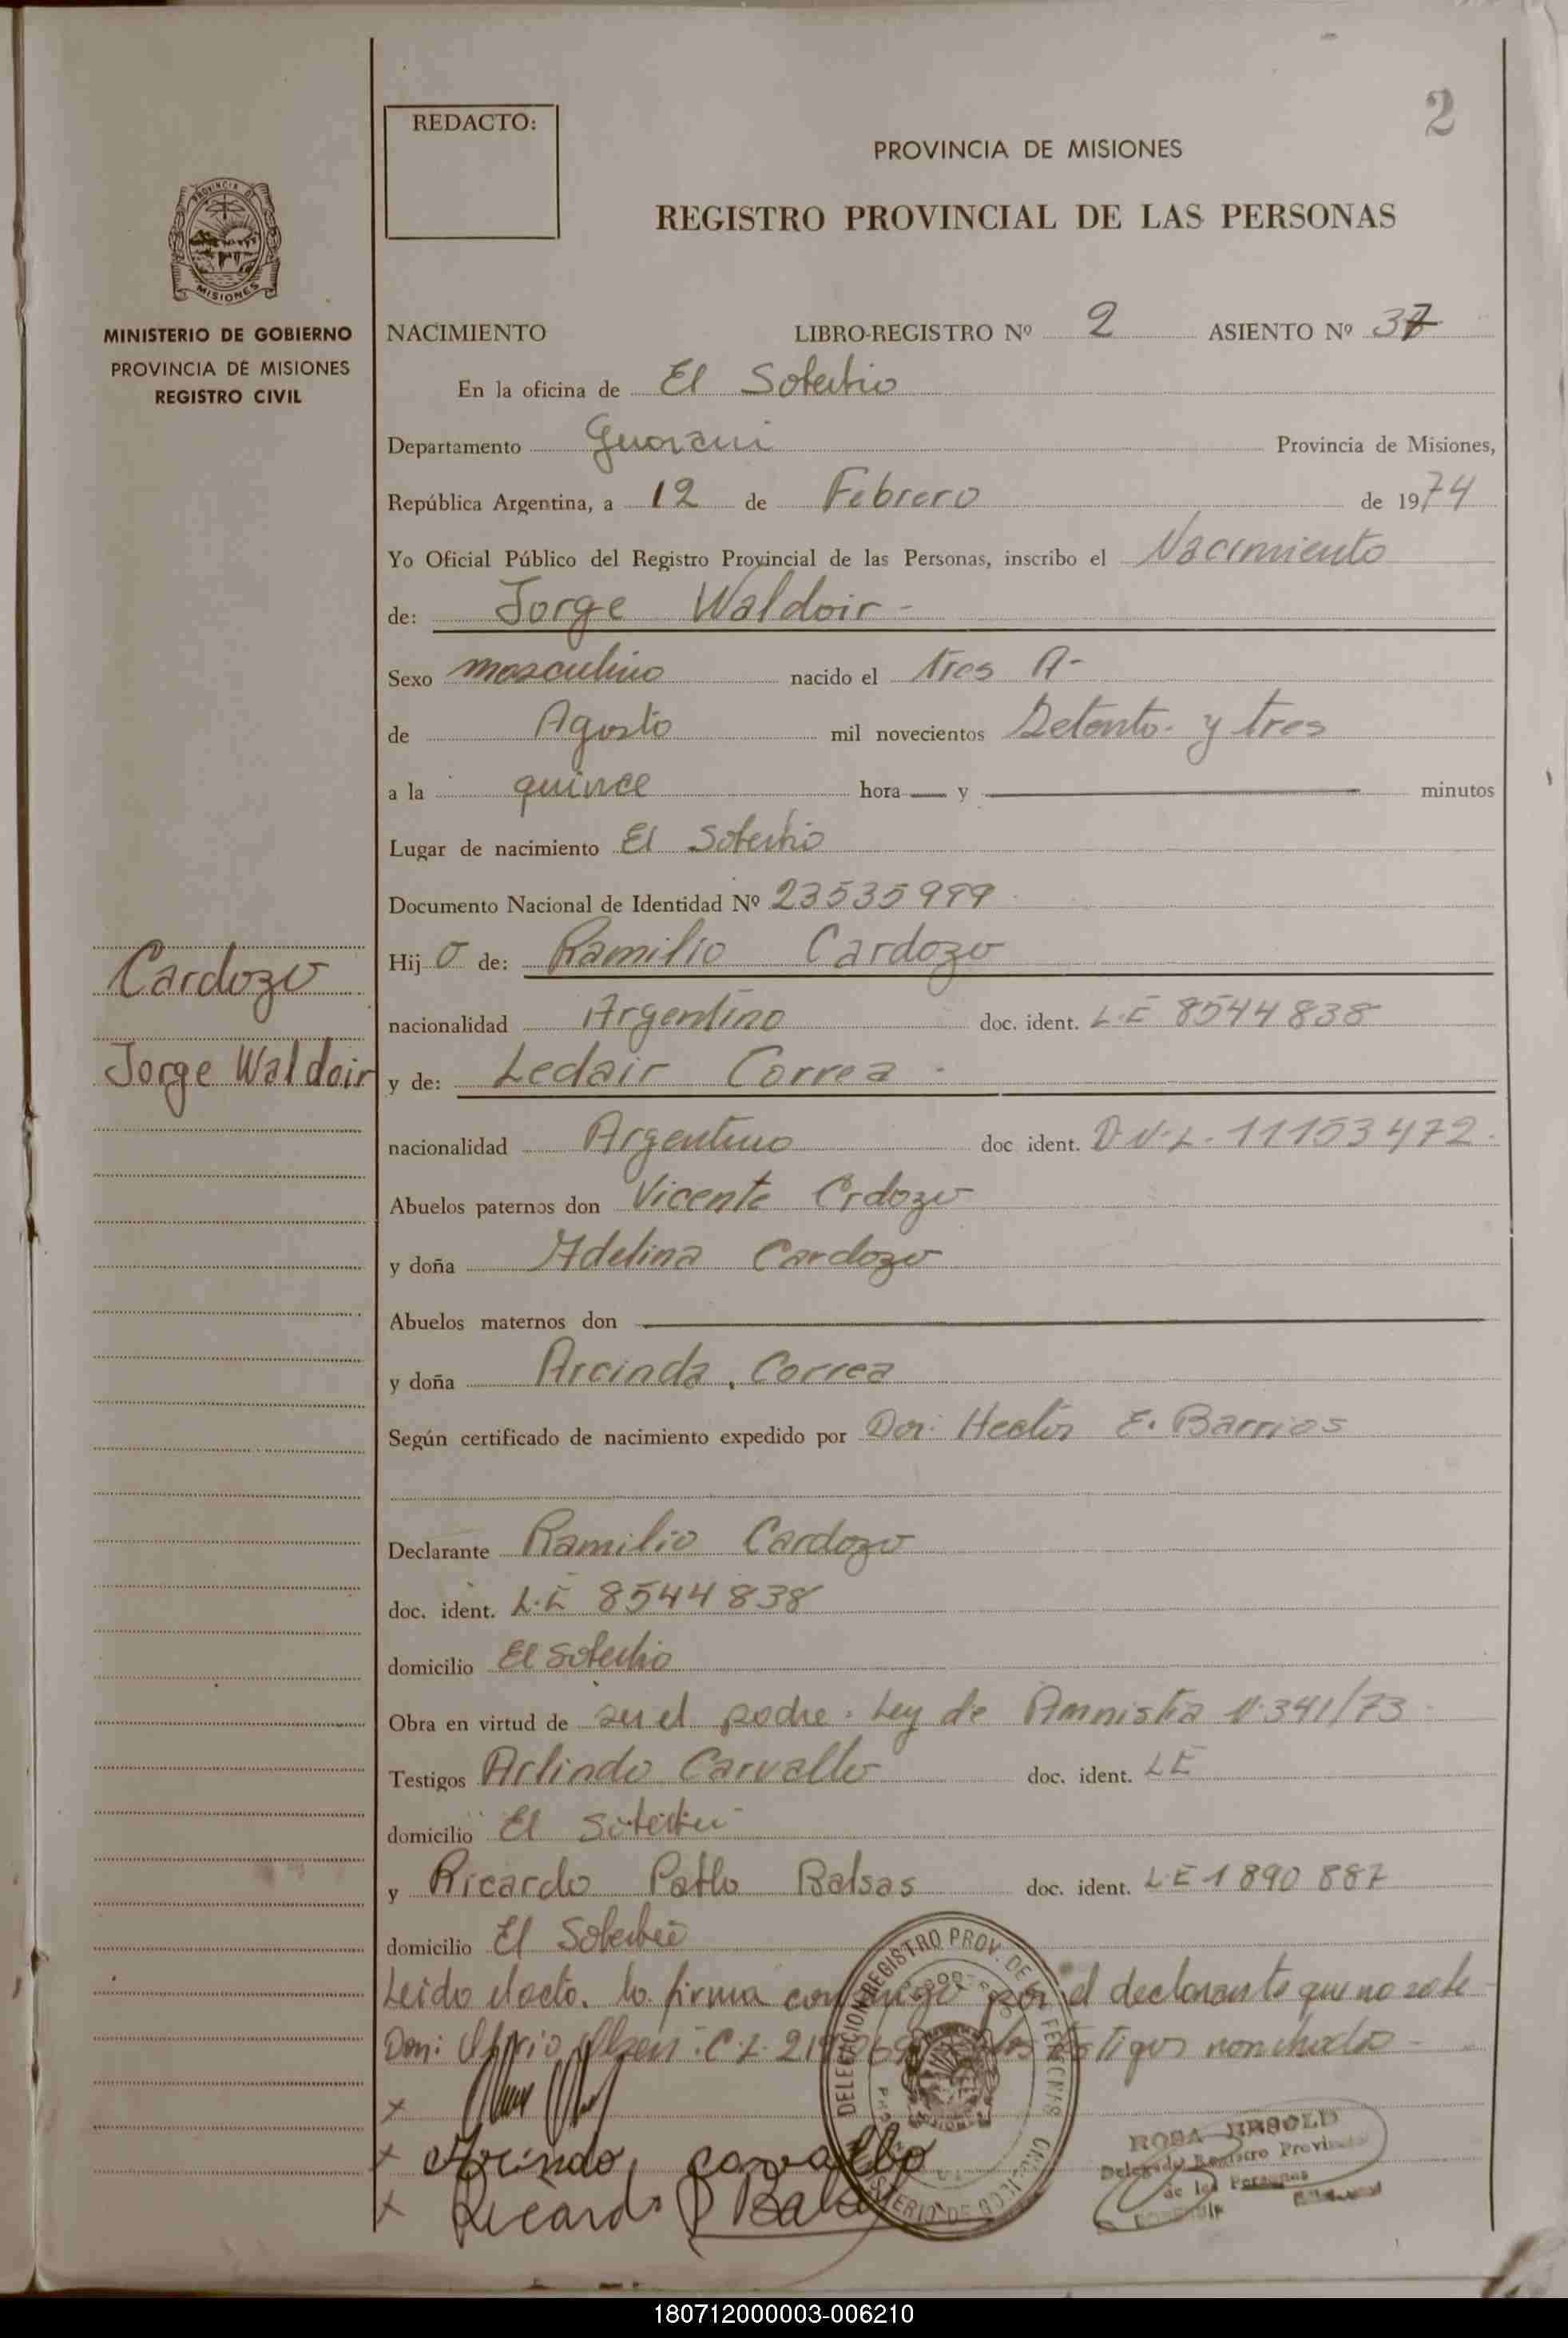 2
REDACTO:
PROVINCIA DE MISIONES
REGISTRO PROVINCIAL DE LAS PERSONAS
PROVINCIA DE
MISIONES
MINISTERIO DE GOBIERNO
PROVINCIA DE MISIONES
REGISTRO CIVIL
NACIMIENTO LIBRO-REGISTRO Nº 2 ASIENTO Nº 37
En la oficina de El Soberbio
Departamento Guarani Provincia de Misiones,
República Argentina, a 12 de Febrero de 1974
Yo Oficial Público del Registro Provincial de las Personas, inscribo el Nacimiento
de: Jorge Waldoir -
Sexo masculino nacido el tres A-
de Agosto mil novecientos Setenta y tres
a la quince hora y minutos
Lugar de nacimiento El Soberbio
Documento Nacional de Identidad Nº 23535999
Hijo de: Ramilio Cardozo
Cardozo
nacionalidad Argentino doc. ident. L.E 8544838
Jorge Waldoir
y de: Ledair Correa
nacionalidad Argentino doc ident. D.N.I. 11153472
Abuelos paternos don Vicente Crdozo
y doña Adelina Cardozo
Abuelos maternos don
y doña Arcinda, Correa
Según certificado de nacimiento expedido por Don: Hector E. Barrios
Declarante Ramilio Cardozo
doc. ident. L.E 8544838
domicilio El Soberbio
Obra en virtud de ser el padre. Ley de Amnistia N.341/73
Testigos Arlindo Carvallo doc. ident. LE
domicilio El Soberbio
y Ricardo Pablo Balsas doc. ident. L.E 1890887
domicilio El Soberbio
Leido el acto. lo firma conmigo por el declarante que no sabe
Don: Olsen C.I. los testigos nombrados -
DELEGACION REGISTRO PROV. DE
MINISTERIO DE GOBIERNO
x
x Arlindo carvalho
x Ricardo P Balsas
ROSA
Delegado Registro Provincial
de las Personas
180712000003-006210